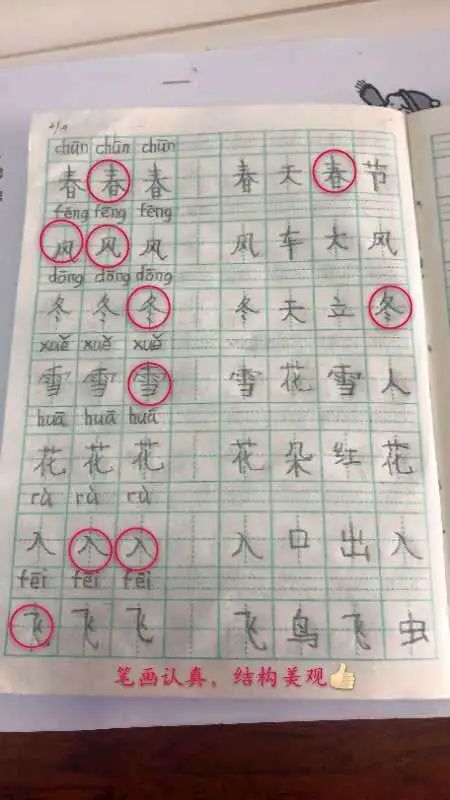 chūn chūn chūn
春 春 春 春 天 春 节
fēng fēng fēng
风 风 风 风 车 大 风
dōng dōng dōng
冬 冬 冬 冬 天 立 冬
xuě xuě xuě
雪 雪 雪 雪 花 雪 人
huā huā huā
花 花 花 花 朵 红 花
rù rù rù
入 入 入 入 口 出 入
fēi fēi fēi
飞 飞 飞 飞 鸟 飞 虫
笔画认真，结构美观